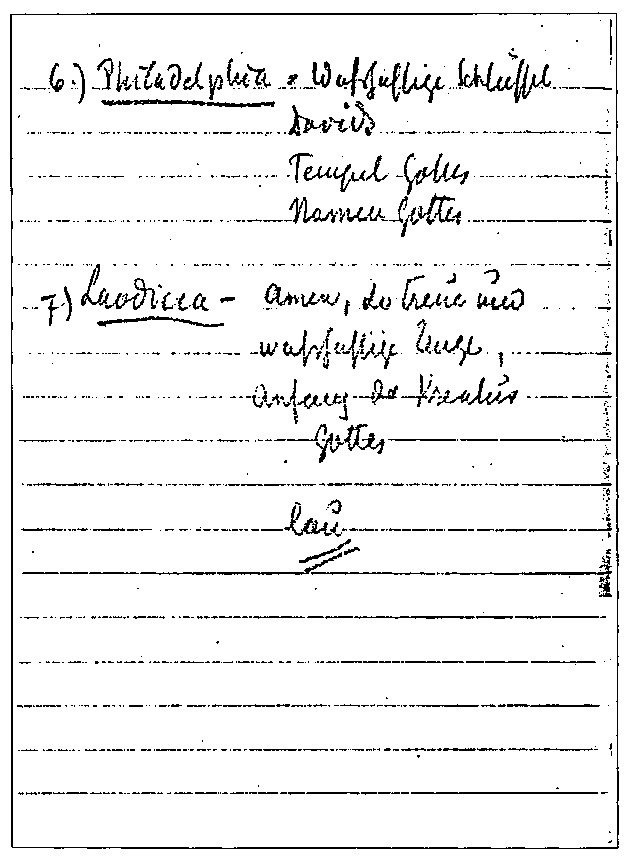 6.) Philadelphia = Wahrhaftige Schlüssel
Davids
Tempel Gottes
Namen Gottes
7) Laodicea - Amen, der treue und
wahrhaftige Zeuge,
Anfang der Kreatur
Gottes
lau